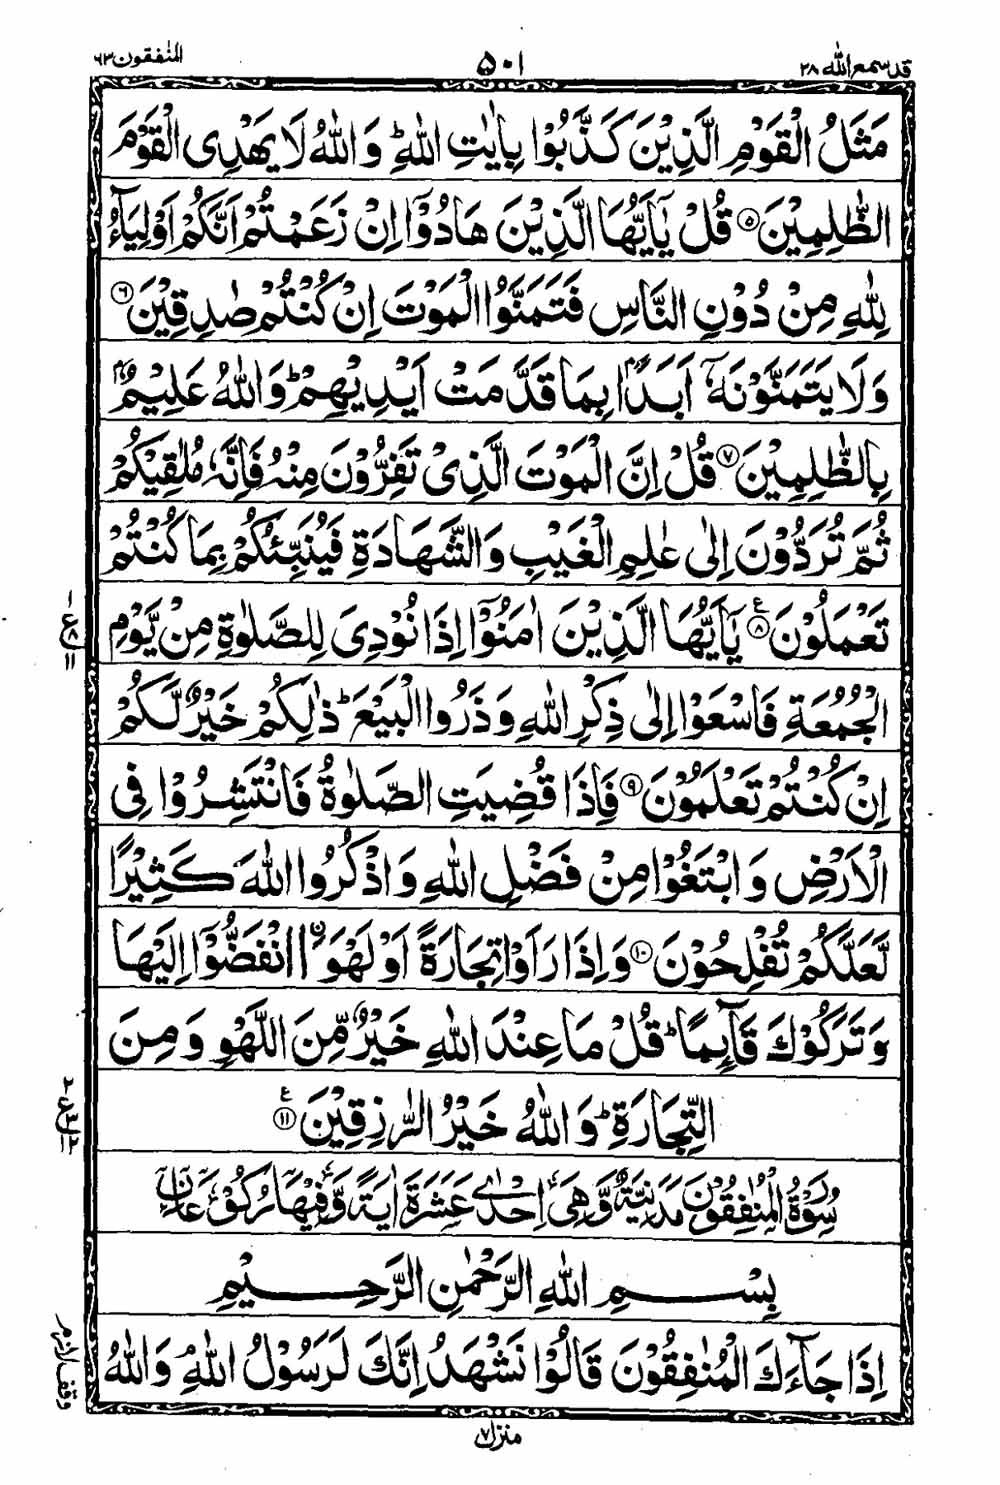 قد سمع الله ٢٨
٥٠١
المنٰفقون ٦٣
مَثَلُ الْقَوْمِ الَّذِيْنَ كَذَّبُوْا بِاٰيٰتِ اللّٰهِ ؕ وَاللّٰهُ لَا يَهْدِى الْقَوْمَ
الظّٰلِمِيْنَ ۝٥ قُلْ يٰۤاَيُّهَا الَّذِيْنَ هَادُوْۤا اِنْ زَعَمْتُمْ اَنَّكُمْ اَوْلِيَآءُ
لِلّٰهِ مِنْ دُوْنِ النَّاسِ فَتَمَنَّوُا الْمَوْتَ اِنْ كُنْتُمْ صٰدِقِيْنَ ۝٦
وَلَا يَتَمَنَّوْنَهٗۤ اَبَدًۢا بِمَا قَدَّمَتْ اَيْدِيْهِمْ ؕ وَاللّٰهُ عَلِيْمٌۢ
بِالظّٰلِمِيْنَ ۝٧ قُلْ اِنَّ الْمَوْتَ الَّذِىْ تَفِرُّوْنَ مِنْهُ فَاِنَّهٗ مُلٰقِيْكُمْ
ثُمَّ تُرَدُّوْنَ اِلٰى عٰلِمِ الْغَيْبِ وَالشَّهَادَةِ فَيُنَبِّئُكُمْ بِمَا كُنْتُمْ
تَعْمَلُوْنَ ۝٨ ع يٰۤاَيُّهَا الَّذِيْنَ اٰمَنُوْۤا اِذَا نُوْدِىَ لِلصَّلٰوةِ مِنْ يَّوْمِ
١ ع ٨ ١١
الْجُمُعَةِ فَاسْعَوْا اِلٰى ذِكْرِ اللّٰهِ وَذَرُوا الْبَيْعَ ؕ ذٰلِكُمْ خَيْرٌ لَّكُمْ
اِنْ كُنْتُمْ تَعْلَمُوْنَ ۝٩ فَاِذَا قُضِيَتِ الصَّلٰوةُ فَانْتَشِرُوْا فِى
الْاَرْضِ وَابْتَغُوْا مِنْ فَضْلِ اللّٰهِ وَاذْكُرُوا اللّٰهَ كَثِيْرًا
لَّعَلَّكُمْ تُفْلِحُوْنَ ۝١٠ وَاِذَا رَاَوْا تِجَارَةً اَوْ لَهْوَا۟ اۨنْفَضُّوْۤا اِلَيْهَا
وَتَرَكُوْكَ قَآئِمًا ؕ قُلْ مَا عِنْدَ اللّٰهِ خَيْرٌ مِّنَ اللَّهْوِ وَمِنَ
التِّجَارَةِ ؕ وَاللّٰهُ خَيْرُ الرّٰزِقِيْنَ ۝١١ ع
٢ ع ٣ ١٢
سُوْرَةُ الْمُنٰفِقُوْنَ مَدَنِيَّةٌ وَّهِىَ اِحْدٰى عَشَرَةَ اٰيَةً وَّفِيْهَا رُكُوْعَانِ
بِسْمِ اللّٰهِ الرَّحْمٰنِ الرَّحِيْمِ
اِذَا جَآءَكَ الْمُنٰفِقُوْنَ قَالُوْا نَشْهَدُ اِنَّكَ لَرَسُوْلُ اللّٰهِ ۘ وَاللّٰهُ
وقف لازم
منزل ٧